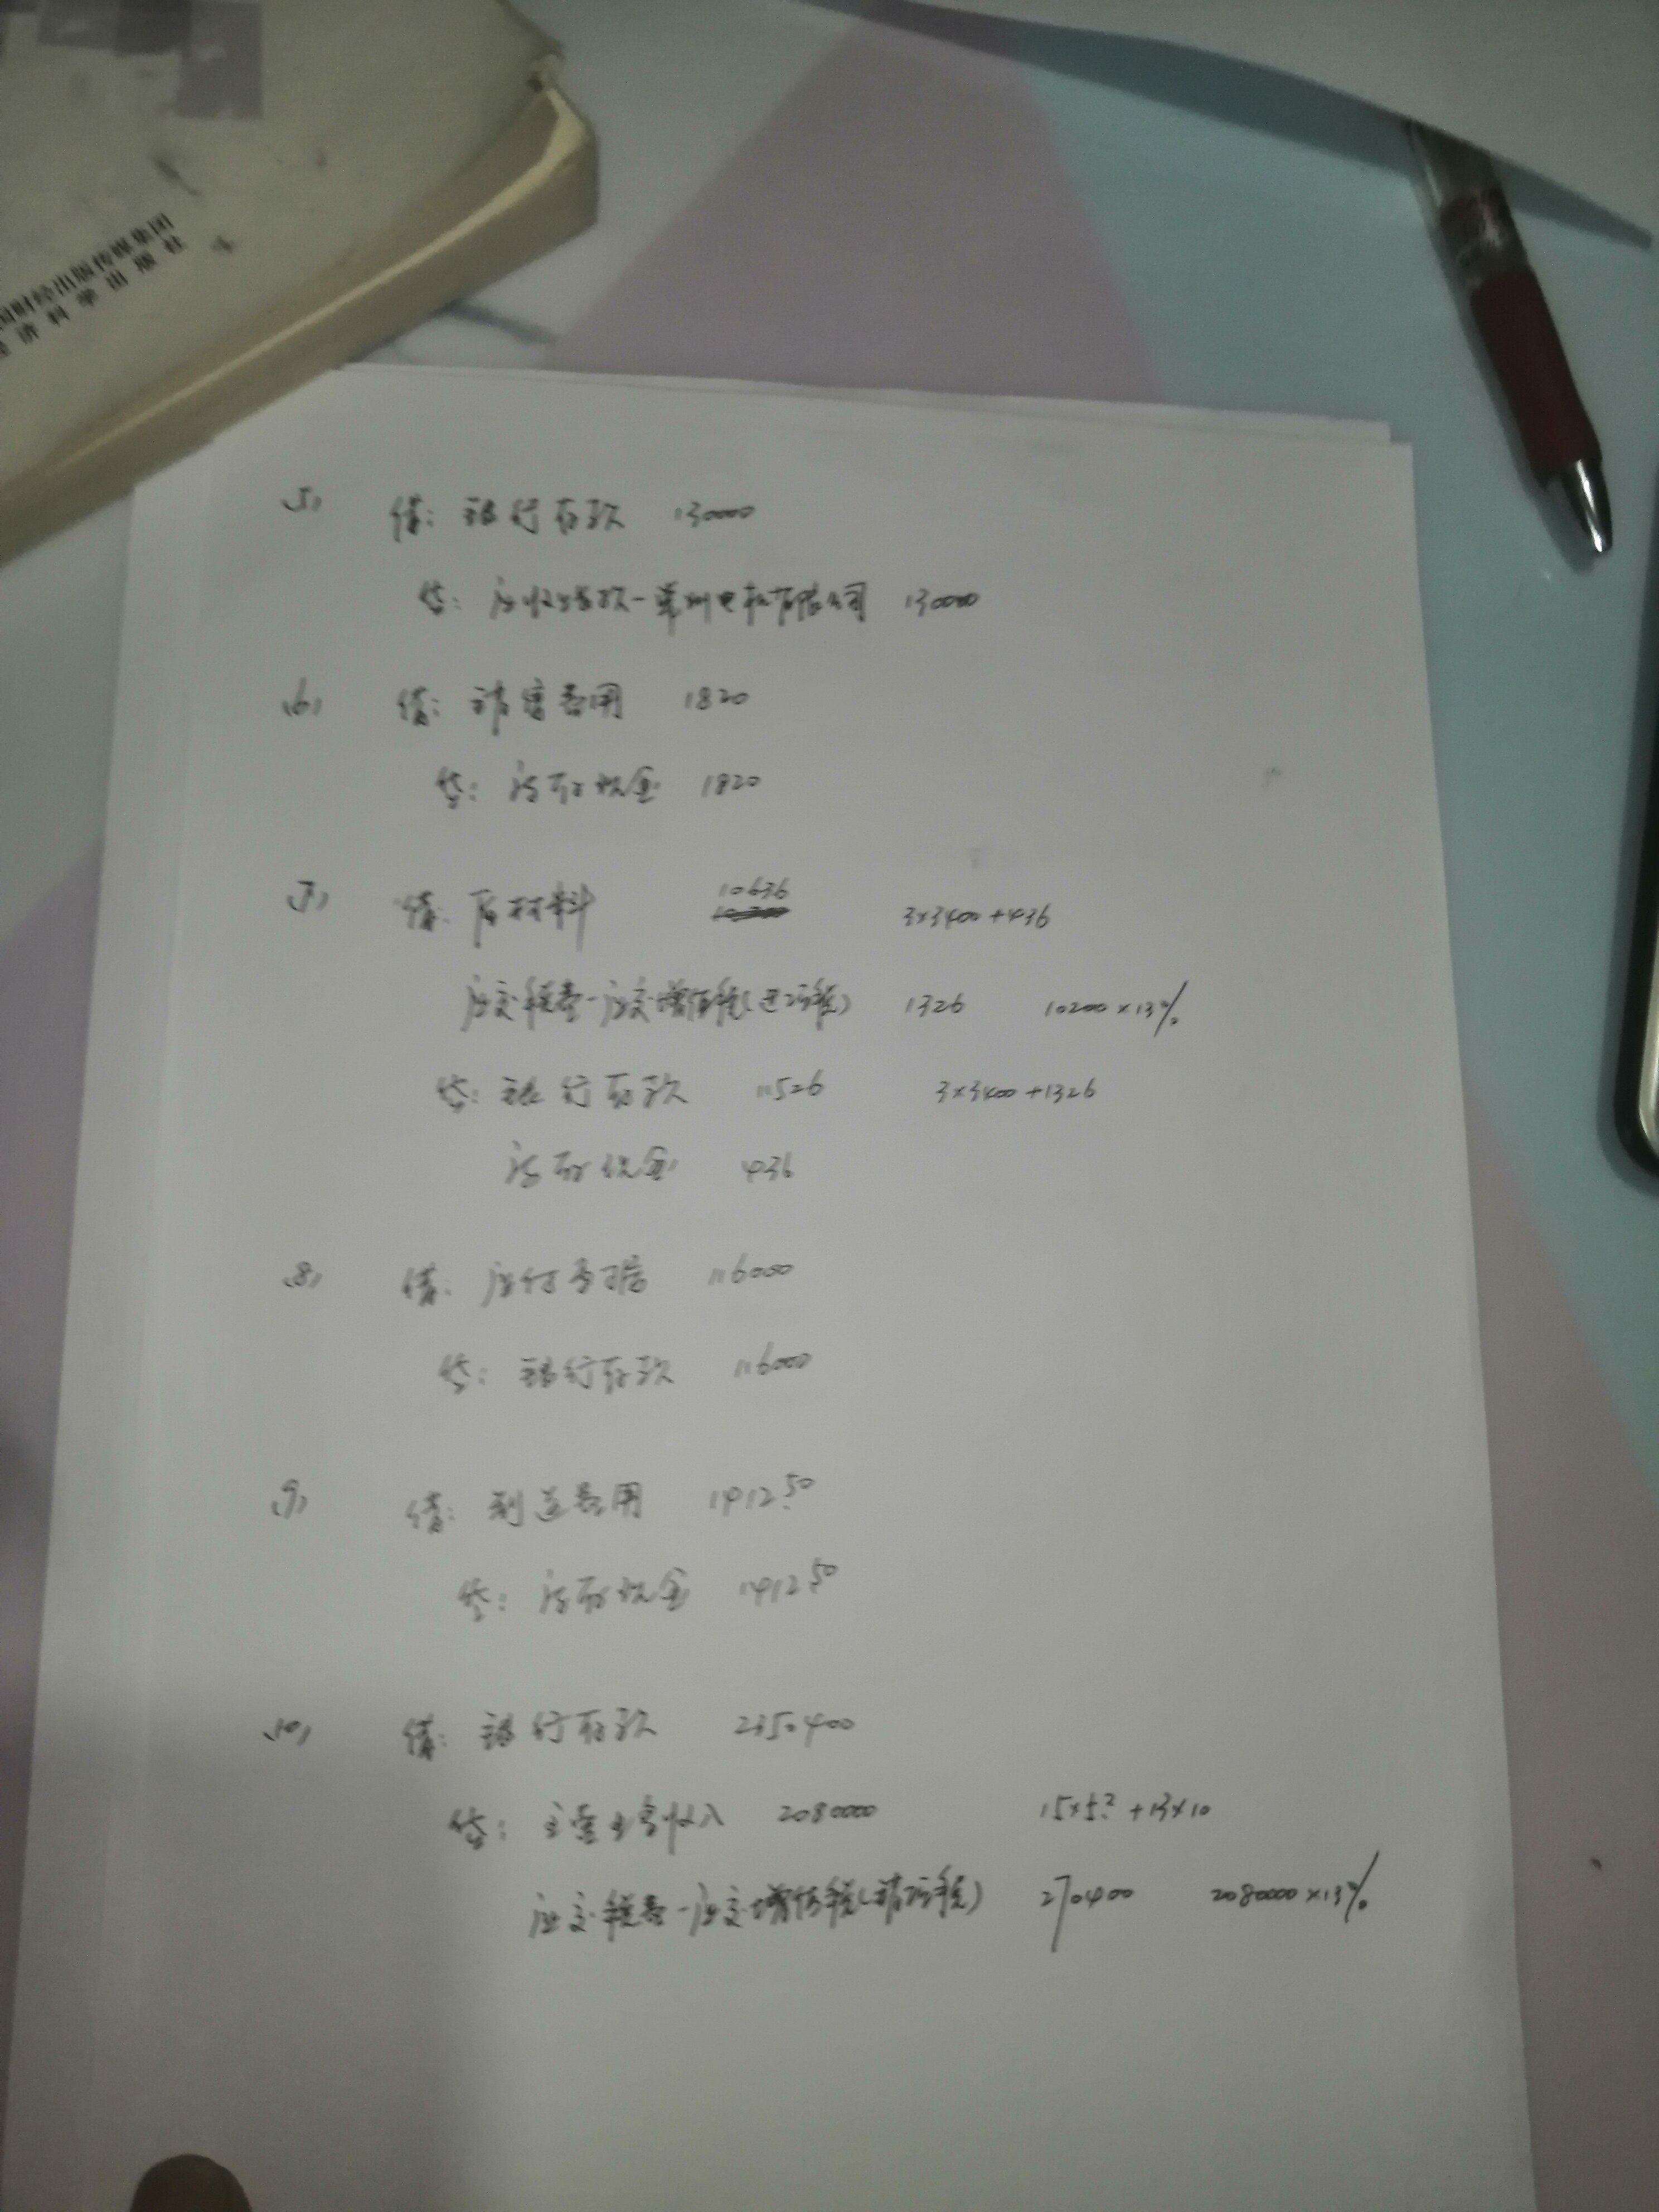 国财经出版传媒集团
济科学出版社
(5) 借：银行存款 130000
贷：应收账款-莱州电机有限公司 130000
(6) 借：销售费用 1820
贷：库存现金 1820
(7) 借：原材料 10636 3×3400+436
应交税费-应交增值税(进项税) 1326 10200×13%
贷：银行存款 11526 3×3400+1326
库存现金 436
(8) 借：应付票据 116000
贷：银行存款 116000
(9) 借：制造费用 1412.50
贷：库存现金 1412.50
(10) 借：银行存款 2350400
贷：主营业务收入 2080000 +13×10
应交税费-应交增值税(销项税) 270400 2080000×13%